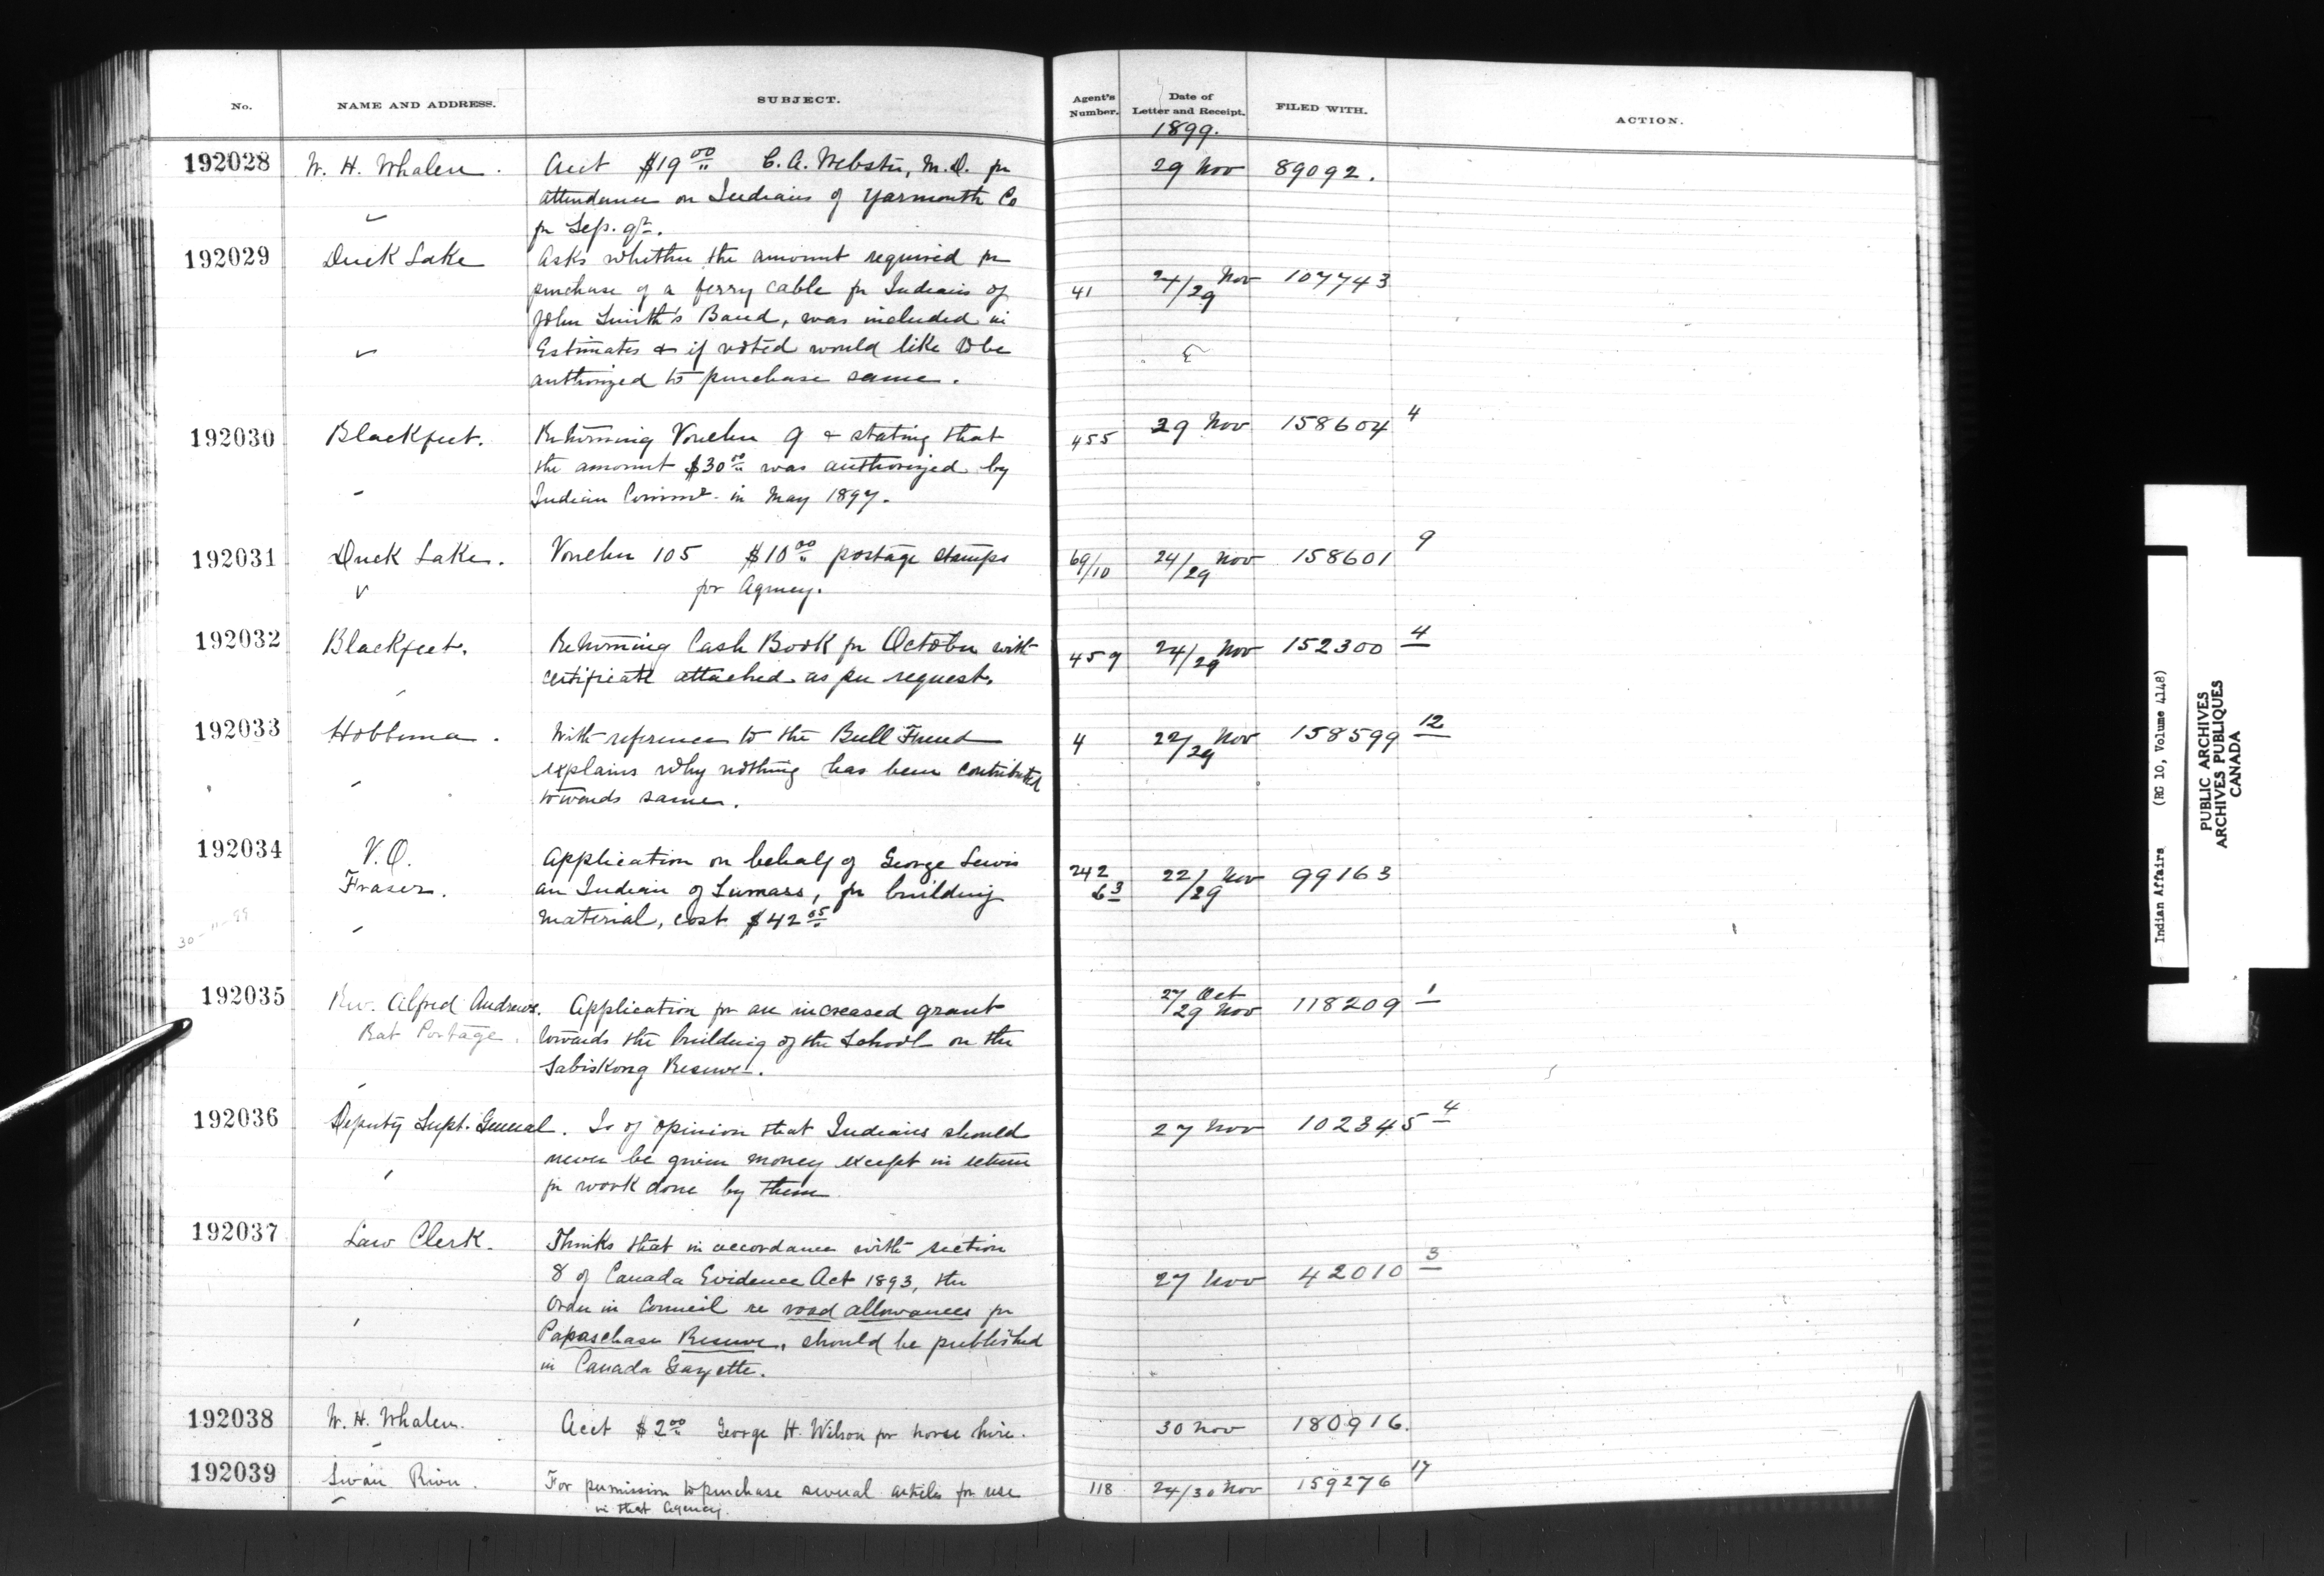 No. NAME AND ADDRESS. SUBJECT. Agent's Number. Date of Letter and Receipt. FILED WITH. ACTION.
1899.
192028 W. H. Whalen. Acct $19 00 C. A. Webster, M.D. for 29 Nov 89092.
attendance on Indians of Yarmouth Co
for Sep. qr.
192029 Duck Lake Asks whether the amount required for
purchase of a ferry cable for Indians of 41 24/29 Nov 107743
John Smith's Band, was included in
Estimates & if voted would like to be
authorized to purchase same.
192030 Blackfeet. Returning Voucher 9 & stating that 455 29 Nov 158604 4
the amount $30 00 was authorized by
Indian Commr in May 1897.
192031 Duck Lake. Voucher 105 $10 00 postage stamps 69/10 24/29 Nov 158601 9
for Agency.
192032 Blackfeet. Returning Cash Book for October with 459 24/29 Nov 152300 4
certificate attached as per request.
192033 Hobbema. With reference to the Bull Fund 4 22/29 Nov 158599 12
explains why nothing has been contributed
towards same.
192034 V.O. Application on behalf of George Lewis 242
Fraser. an Indian of Sumass, for building 63 22/29 Nov 99163
material, cost $42 05
30-11-99
192035 Rev. Alfred Andrews. Application for an increased grant 27 Oct/29 Nov 118209 1
Rat Portage. towards the building of the School on the
Sabiskong Reserve.
192036 Deputy Supt. General. Is of opinion that Indians should 27 Nov 102345 4
never be given money except in return
for work done by them
192037 Law Clerk. Thinks that in accordance with section
8 of Canada Evidence Act 1893, the 27 Nov 42010 3
Order in Council re road allowances for
Papaschase Reserve, should be published
in Canada Gazette.
192038 W. H. Whalen. Acct $2 00 George H. Wilson for horse hire. 30 Nov 180916.
192039 Swan River. For permission to purchase several articles for use 118 24/30 Nov 159276 17
in that Agency.
Indian Affairs (RG 10, Volume 4148)
PUBLIC ARCHIVES
ARCHIVES PUBLIQUES
CANADA